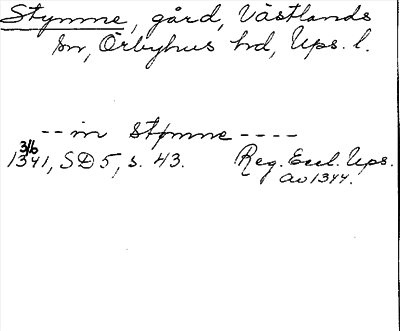 Stymne, gård, Västlands
sn, Örbyhus hd, Ups. l.
-- in Stymne ----
3/6
1341, SD 5, s. 43. Reg. Eccl. Ups.
av 1344.